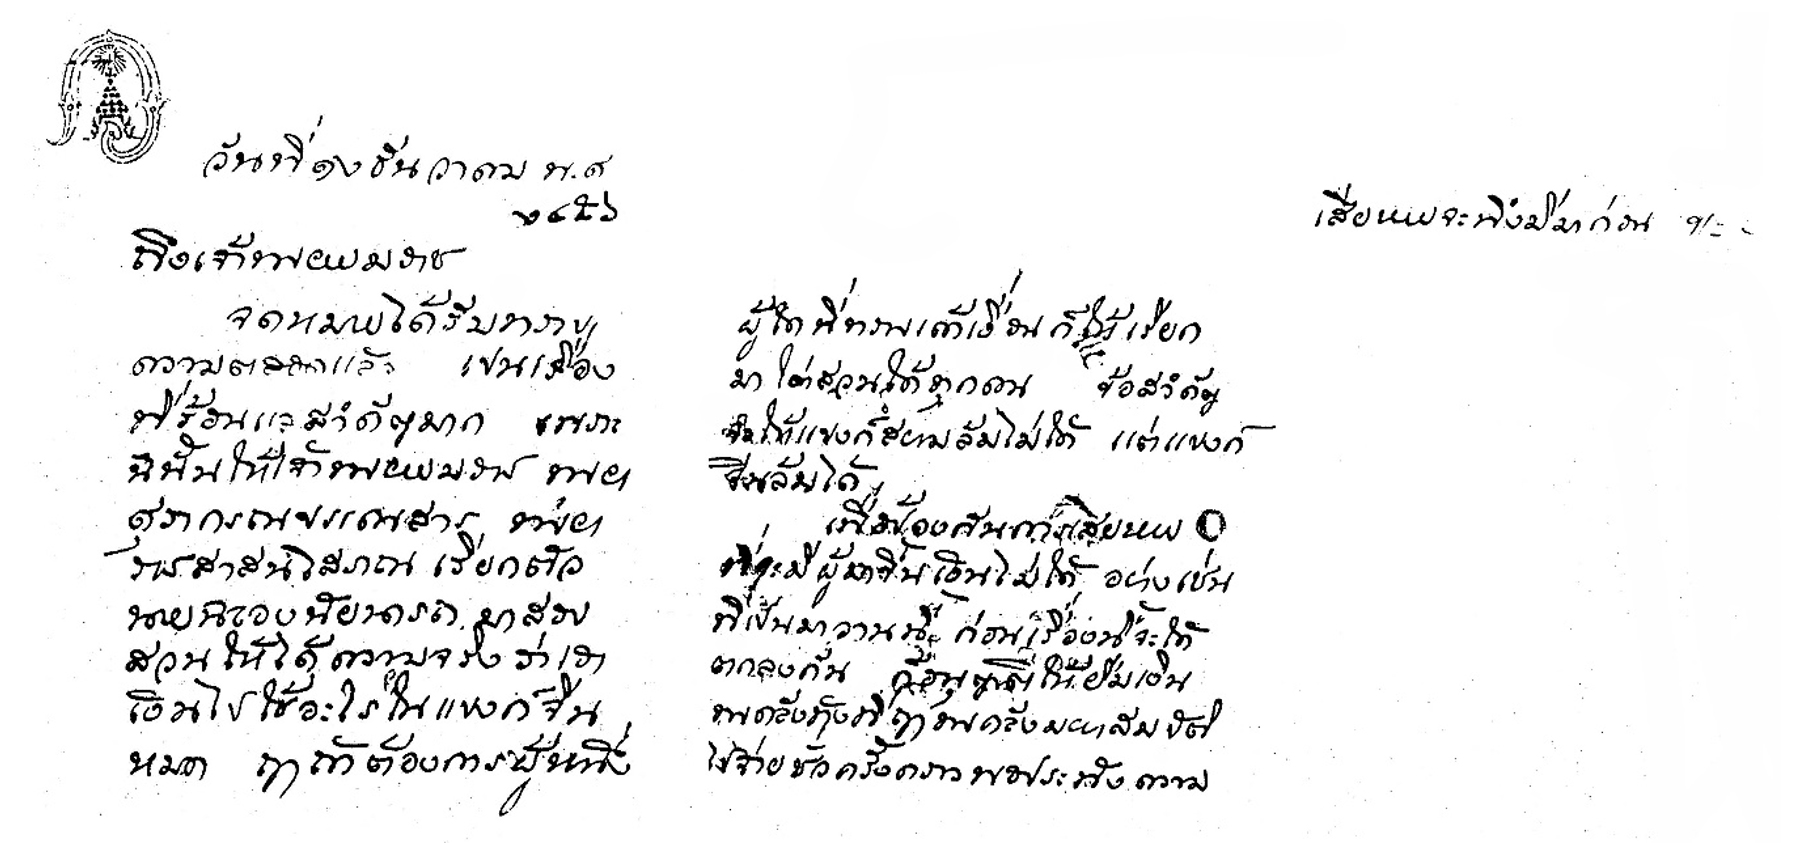 วันที่ ๑๖ ธันวาคม พ.ศ
๒๔๕๖
ถึงเจ้าพระยายมราช
จดหมายได้รับทราบ
ความตลอดแล้ว เปนเรื่อง
ที่ร้อนแลสำคัญมาก เพราะ
ฉนั้นให้เจ้าพระยายมราช พระยา
ศุภกรณบรรณสาร พระยา
เรียกตัว
นายฉลองนัยนารถ มาสอบ
สวนให้ได้ความจริงว่าเอา
เงินไปใช้อะไรในแบงก์จีน
หมด ฤๅถ้าต้องการผู้หนึ่ง
ผู้ใดที่ทราบเค้าเงื่อนก็ให้เรียก
มาไต่สวนได้ทุกคน ข้อสำคัญ
จะให้แบงก์สยามล้มไม่ได้ แต่แบงก์
จีนล้มได้
เพื่อป้องกันการเสียหาย
ที่จะมีผู้มาขึ้นเงินไม่ได้ อย่างเช่น
ที่เปนมาวานนี้ ก่อนเรื่องนี้จะได้
ตกลงกัน ก็อนุญาตให้ยืมเงิน
พระคลังข้างที่ฤๅพระคลังมหาสมบัติ
ไปจ่ายชั่วครั้งคราวพอประทังความ
เสียหายจะพึงมีมาก่อน